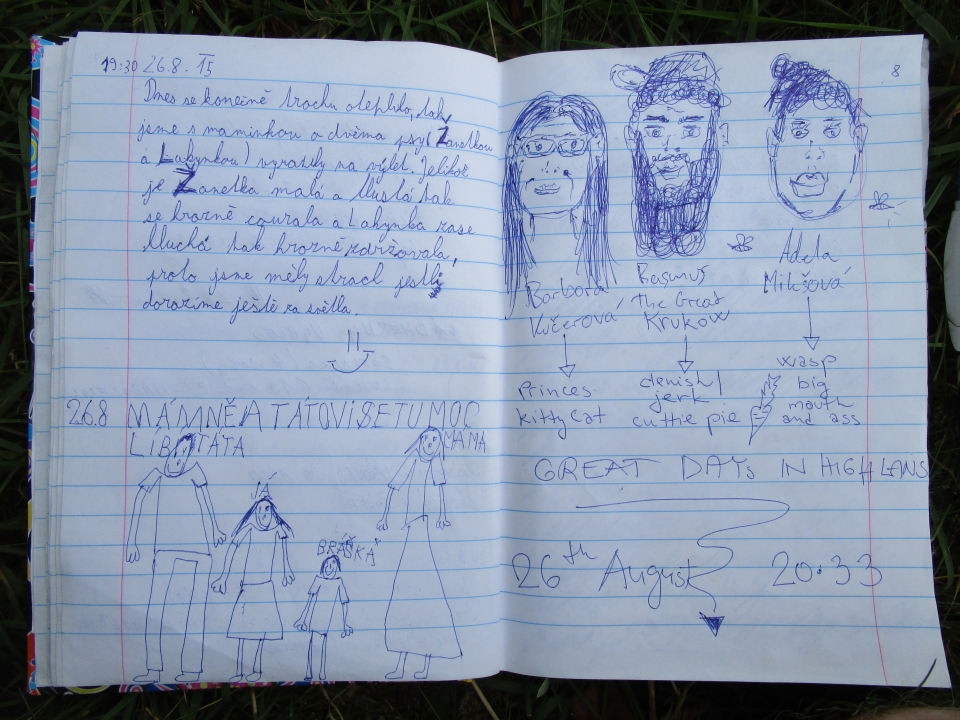 19:30 26.8. 15
Dnes se konečně trochu oteplilo, tak
jsme s maminkou a dvěma psy (Žanetkou
a Lakynkou) vyrazily na výlet. Jelikož
je Žanetka malá a tlustá tak
se hrozně courala a Lakynka zase
hluchá tak hrozně zdržovala,
proto jsme měly strach jestli
dorazíme ještě za světla.
26.8 MÁMNĚ A TÁTOVI SE TU MOC
LÍBÍ
TÁTA
MÁMA
BRÁŠKA
8
Barbora
Kučerová
Rasmus
The Great
Krukow
Adela
Mikšová
Princes
kitty cat
denish
jerk
cuttie pie
wasp
big
mouth
and ass
GREAT DAYS IN HIGHLANS
26th August 20:33